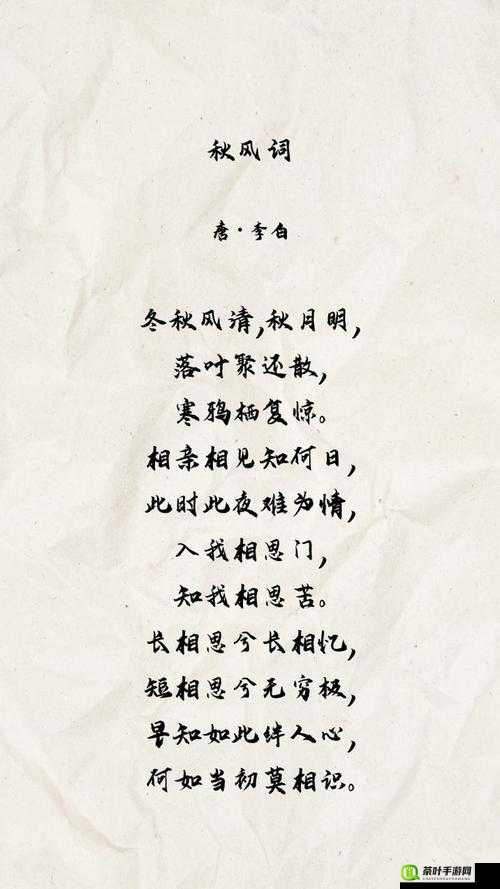 秋风词
唐·李白
冬秋风清,秋月明,
落叶聚还散,
寒鸦栖复惊。
相亲相见知何日,
此时此夜难为情,
入我相思门,
知我相思苦。
长相思兮长相忆,
短相思兮无穷极,
早知如此绊人心,
何如当初莫相识。
茶叶手游网